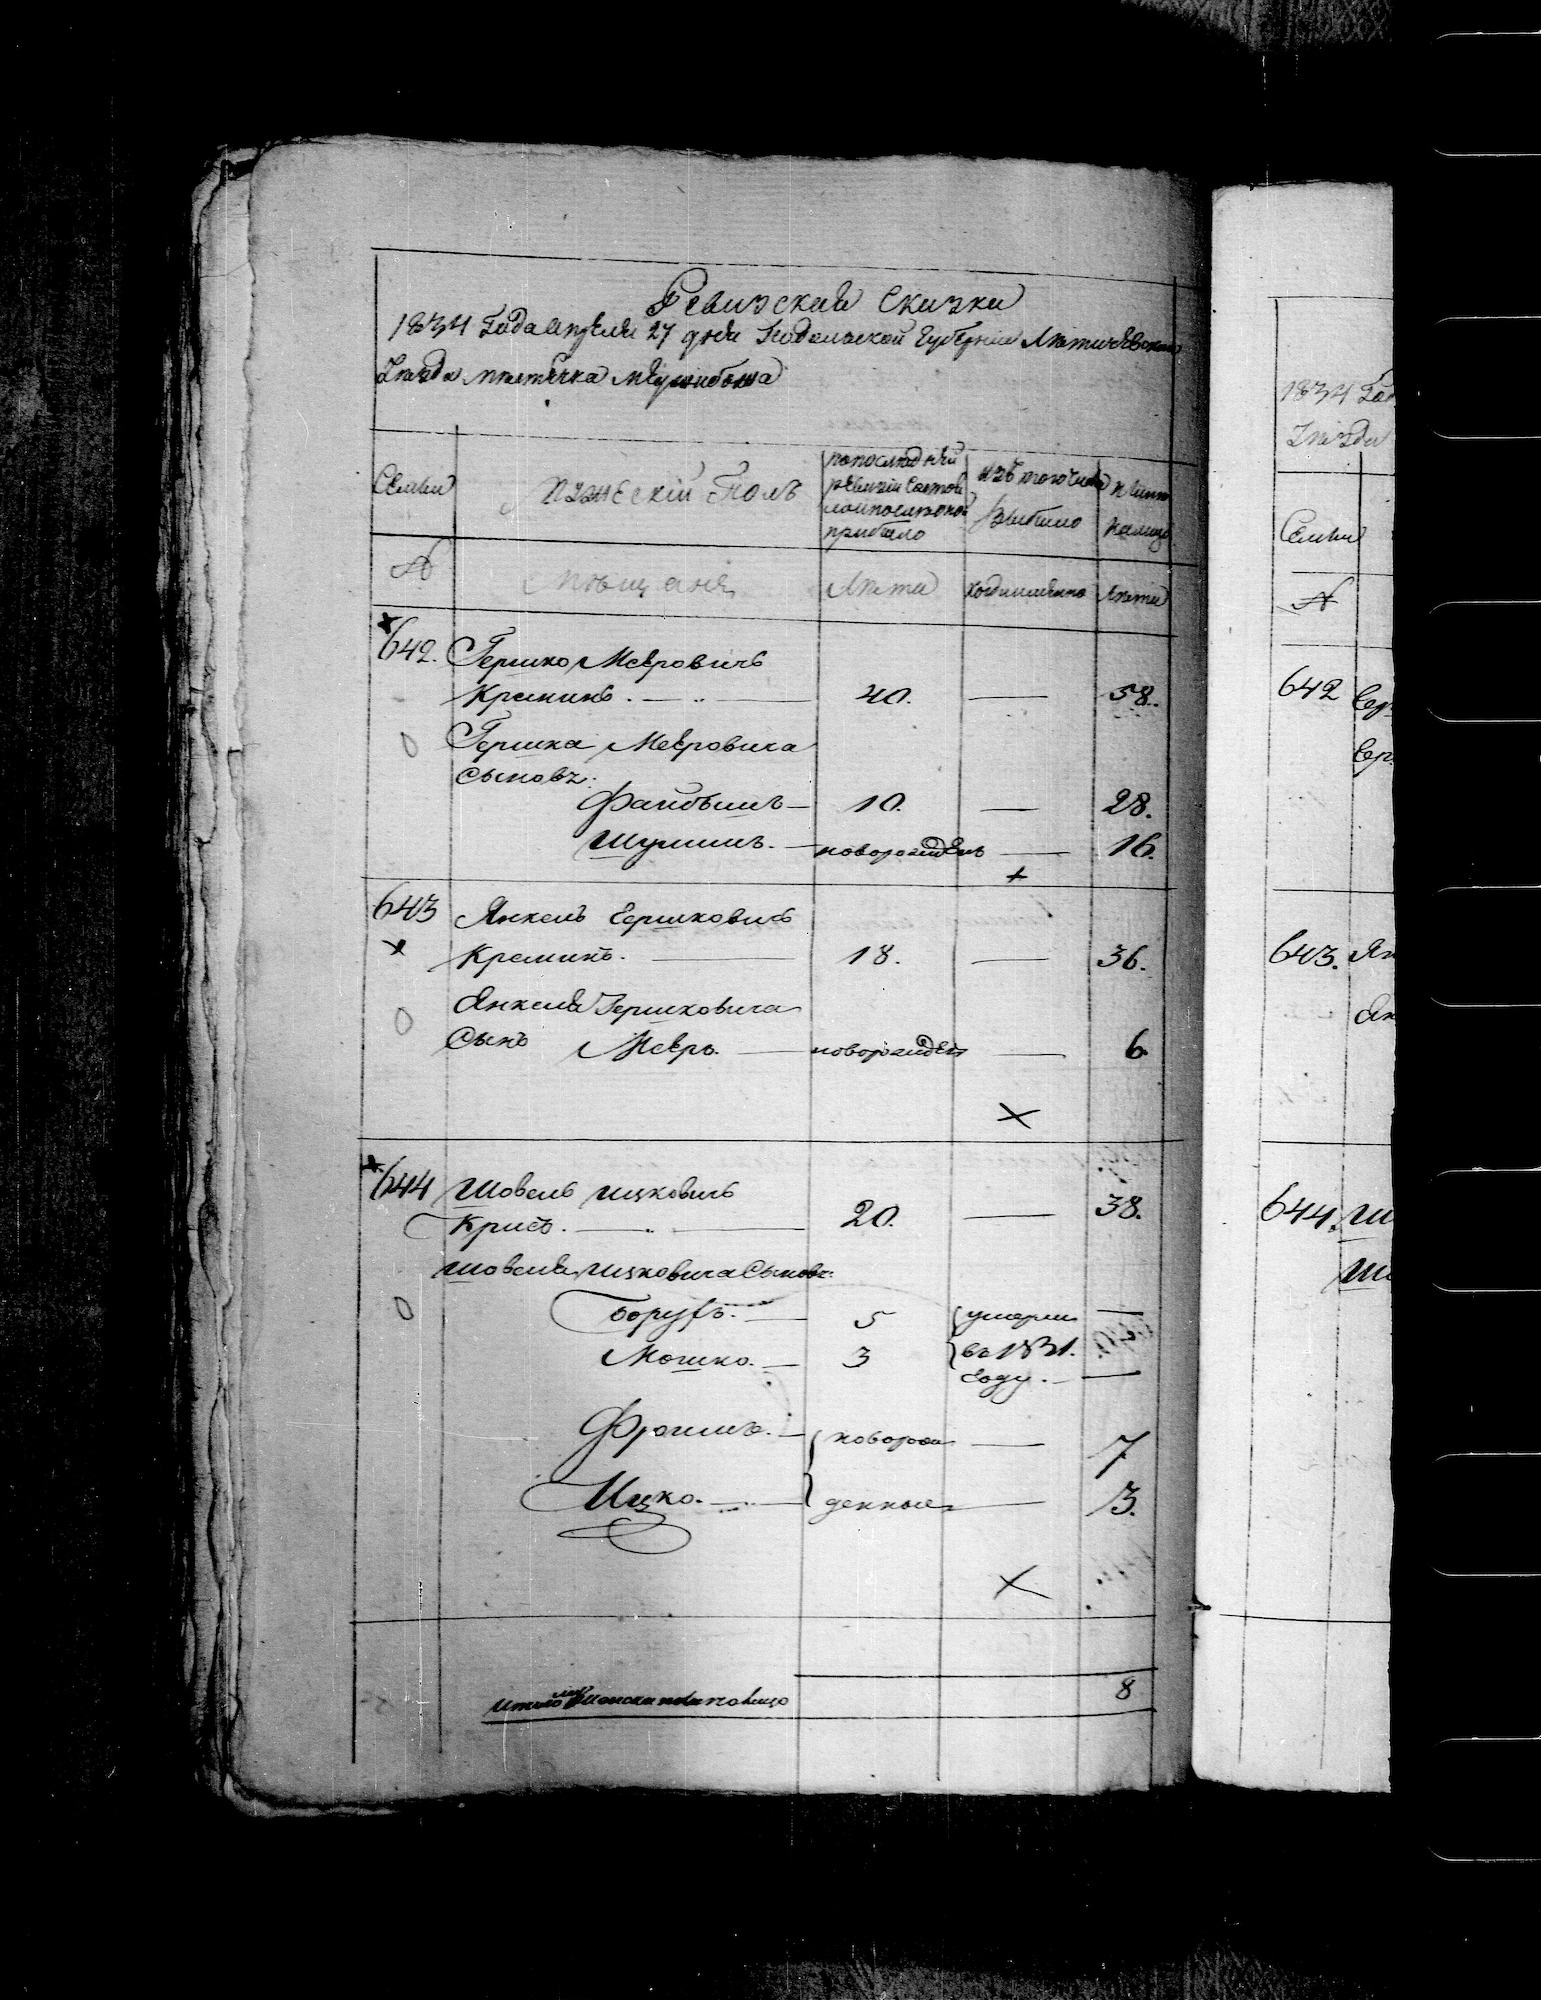 Ревизская Сказка
1834 Года апреля 27 дня Подольской Губерніи Летичевскаго
Уезда местечка Меджибожа
Семьи
Мужескій Полъ
по последней
ревизіи состоя
ло и после оной
прибыло
Изъ того числа
Выбыло
Ныне
на лицо
№
Мещане
Лета
Когда именно
Лета
642. Гершко Мееровичъ
Креминъ. 40. — 58.
Гершка Мееровича
Сыновья:
Файбышъ — 10. — 28.
Шулимъ. — новорожденъ — 16.
643 Янкель Гершковичъ
Креминъ. — 18. — 36.
Янкеля Гершковича
Сынъ Мееръ. — новорожден — 6
644 Шовель Ицковичъ
Крисъ. — 20. — 38.
Шовеля Ицковича Сыновья:
Борухъ. — 5 умерли —
Мошко. — 3 въ 1831.
году. —
Фроимъ. — новорож — 7
Ицко. — денные — 3.
8
1834 Года
Уезда
Семьи
№
642
643. Ян
Ян
644. Ш
Ш